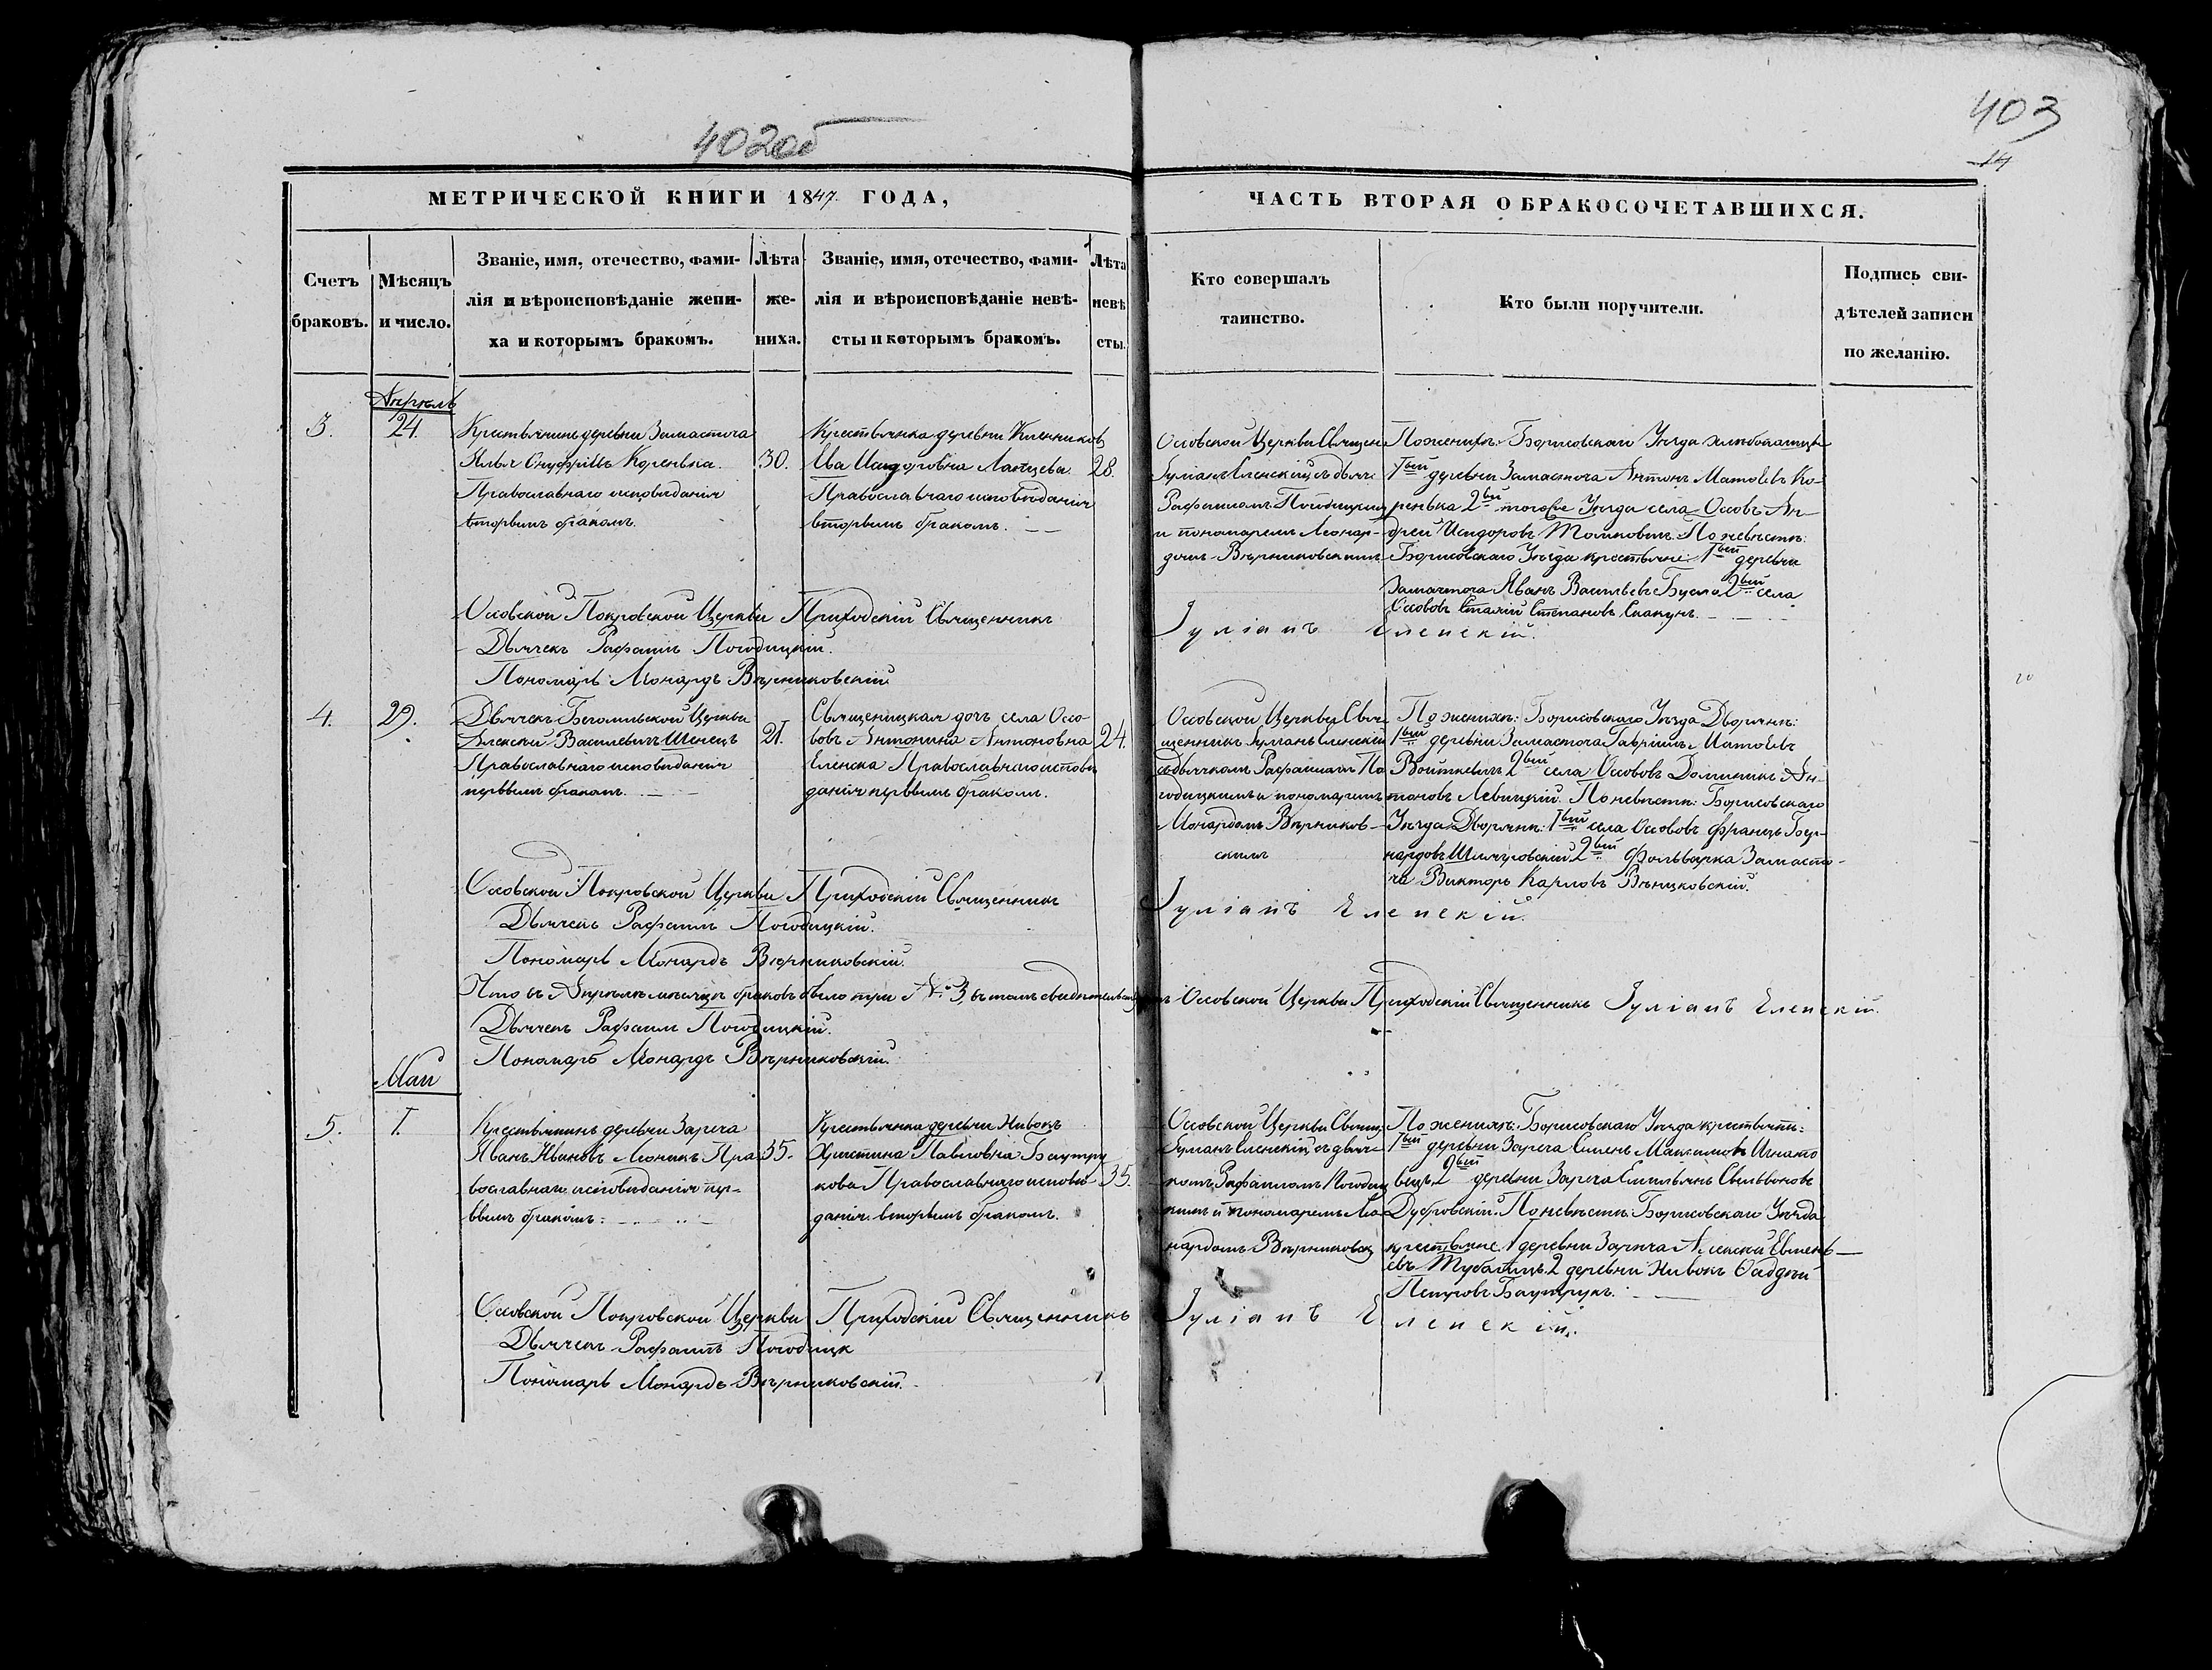 402об
403
14
МЕТРИЧЕСКОЙ КНИГИ 1847 ГОДА,
ЧАСТЬ ВТОРАЯ О БРАКОСОЧЕТАВШИХСЯ.
Счетъ
браковъ.
Мѣсяцъ
и число.
Званіе, имя, отечество, фами-
лія и вѣроисповѣданіе жени-
ха и которымъ бракомъ.
Лѣта
же-
ниха.
Званіе, имя, отечество, фами-
лія и вѣроисповѣданіе невѣ-
сты и которымъ бракомъ.
Лѣта
невѣ
сты.
Кто совершалъ
таинство.
Кто были поручители.
Подпись сви-
дѣтелей записи
по желанію.
Апрѣль
3.
24.
Крестьянинъ деревни Замасточа
Илья Онуфріевъ Коренька.
Православнаго исповѣданія
вторымъ бракомъ.
30.
Крестьянка деревни
Ева Исидоровна Лапцева
Православнаго исповѣданія
вторымъ бракомъ.
28.
Осовской Церкви Священ
Іуліанъ Еленскій съ дьяч
Рафаиломъ Погодицкимъ
и пономаремъ Леонар-
домъ Вѣрниковскимъ
По женихѣ: Борисовскаго Уѣзда
1вый деревни Замасточа Антонъ Матѳеевъ Ко-
ренька 2ой тогоже Уѣзда села Осовъ Ан-
дрей Исидоровъ Томковичъ. По невѣстѣ:
Борисовскаго Уѣзда крестьяне: 1вый деревни
Замасточа Иванъ Васильевъ 2ой села
Осововъ Степановъ Скакунъ.
Осовской Покровской Церкви Приходскій Священникъ
Іуліанъ Еленскій.
Дьячекъ Рафаилъ Погодицкій.
Пономарь Леонардъ Вѣрниковскій
4.
29.
Дьячекъ Бегомльской Церкви
Алексѣй Васильевичъ Шенецъ
Православнаго исповѣданія
первымъ бракомъ.
21.
Священицкая дочь села Осо-
вовъ Антонина Антоновна
Еленска Православнаго исповѣ
данія первымъ бракомъ.
24.
Осовской Церкви Свя-
щенникъ Іуліанъ Еленскій
съ дьячкомъ Рафаиломъ По
годицкимъ и пономаремъ
Леонардомъ Вѣрников-
скимъ
По женихѣ: Борисовскаго Уѣзда Дворяне:
1вый деревни Замасточа Гавріилъ Матѳеевъ
Войткевичъ 2ой села Осововъ Доминикъ Ан-
тоновъ Левицкій. По невѣстѣ: Борисовскаго
Уѣзда Дворяне: 1вый села Осововъ Францъ Бер-
нардовъ 2ой Фольварка Замасто-
ча Викторъ Карловъ Вѣнцковскій.
Осовской Покровской Церкви Приходскій Священникъ
Іуліанъ Еленскій.
Дьячекъ Рафаилъ Погодицкій.
Пономарь Леонардъ Вѣрниковскій.
Что въ Апрѣлѣ мѣсяцѣ браковъ было три №3, въ томъ свидѣтельствуемъ Осовской Церкви Приходскій Священникъ Іуліанъ Еленскій.
Дьячекъ Рафаилъ Погодицкій.
Пономарь Леонардъ Вѣрниковскій.
Май
5.
1.
Крестьянинъ деревни Зареча
Иванъ Ивановъ Леоникъ Пра
вославнаго исповѣданія пер-
вымъ бракомъ.
35.
Крестьянка деревни Нивокъ
Христина Павловна Баутру
кова Православнаго исповѣ
данія вторымъ бракомъ.
35.
Осовской Церкви Священ
Іуліанъ Еленскій съ дьяч-
комъ Рафаиломъ Погодиц
кимъ и пономаремъ Лео
нардомъ Вѣрниковск
По женихѣ: Борисовскаго Уѣзда крестьяне:
1вый деревни Зареча Семенъ Максимовъ Игнато
вецъ, 2ой деревни Зареча Емильянъ
Дубровскій. По невѣстѣ Борисовскаго Уѣзда
крестьяне 1 деревни Зарѣча Алексѣй
2 деревни Нивокъ
Петровъ Баутрукъ.
Осовской Покровской Церкви Приходскій Священникъ
Іуліанъ Еленскій.
Дьячекъ Рафаилъ Погодицк
Пономарь Леонардъ Вѣрниковскій.